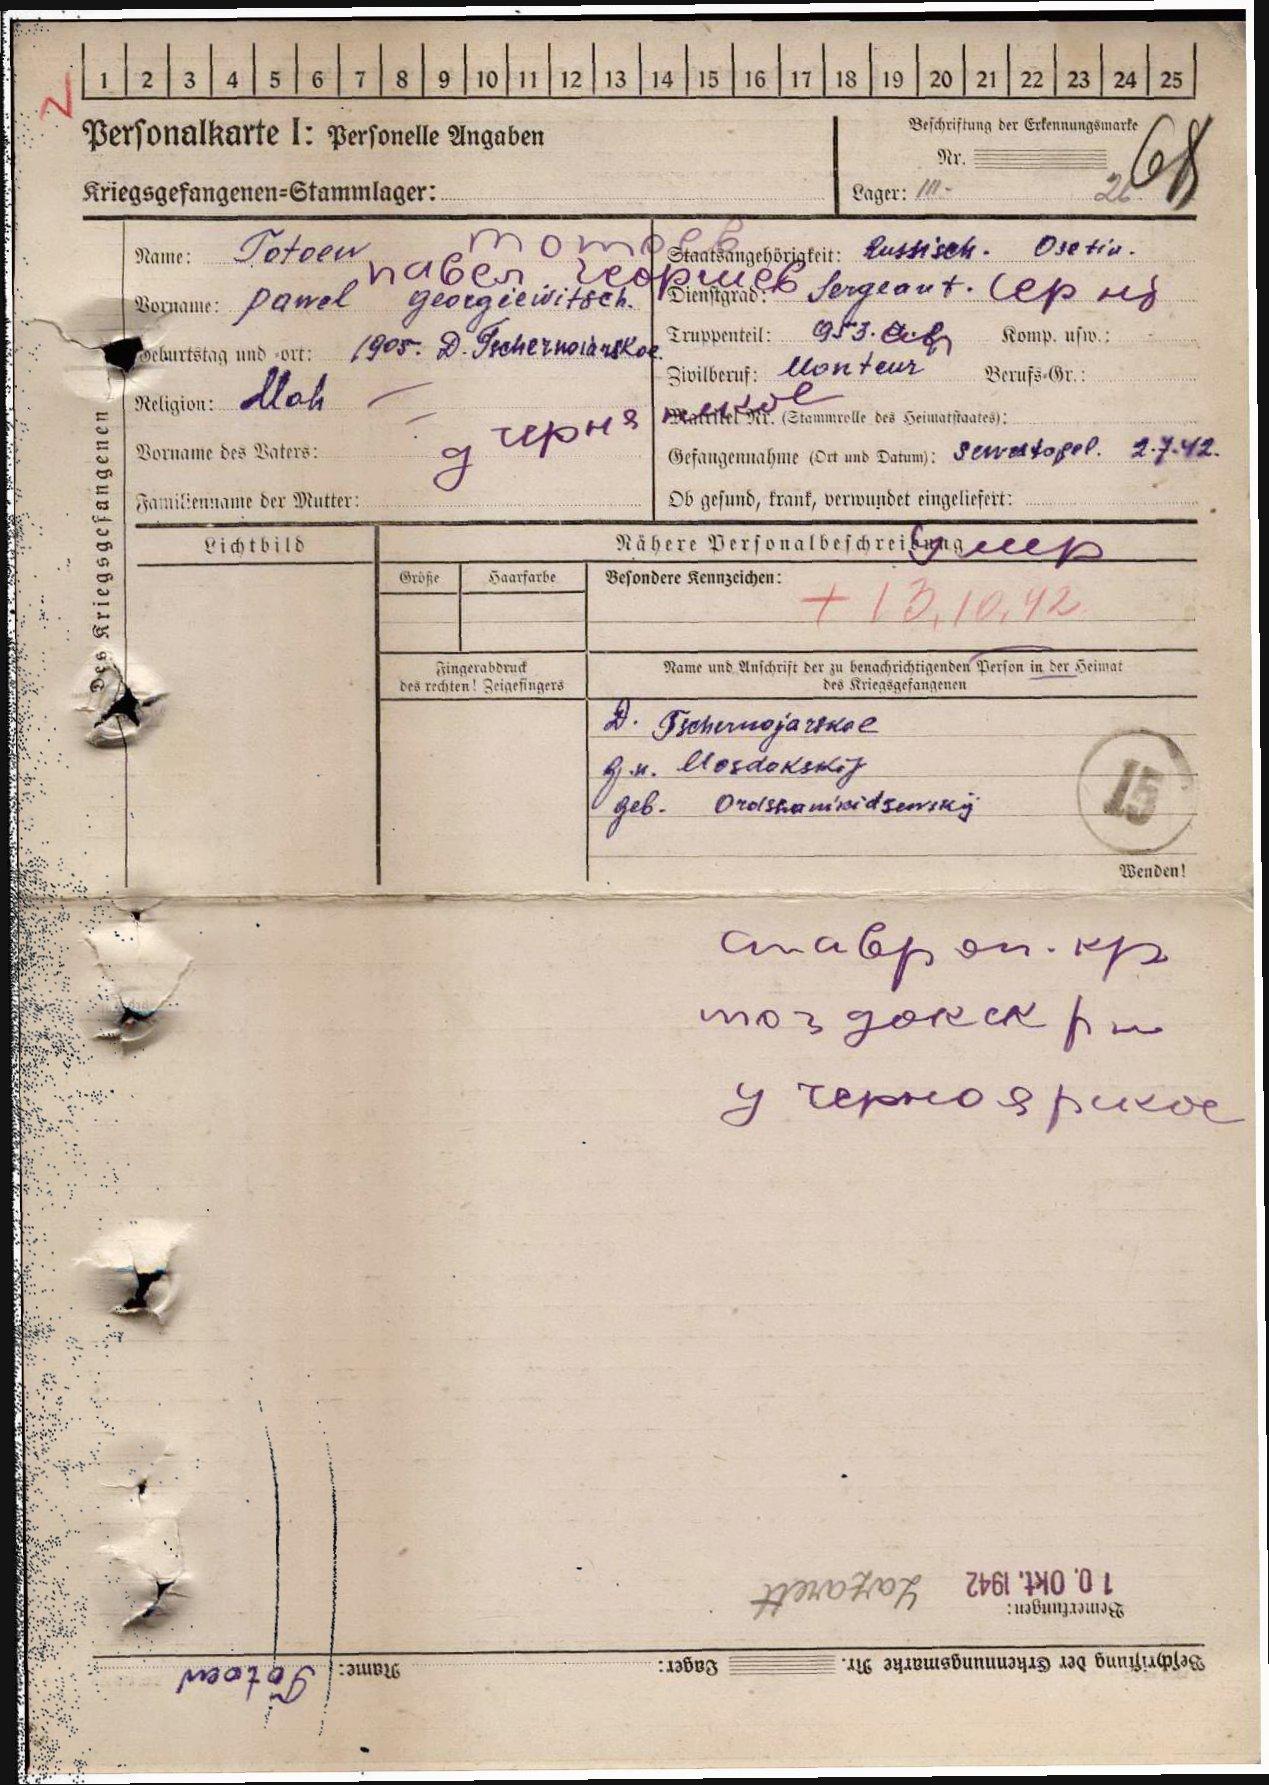 1 2 3 4 5 6 7 8 9 10 11 12 13 14 15 16 17 18 19 20 21 22 23 24 25
Personalkarte I: Personelle Angaben
Beschriftung der Erkennungsmarke
Nr.
Kriegsgefangenen=Stammlager:
Lager: III-
Des Kriegsgefangenen
Тотоев
Name: Totoew
Павел Георгиев
Vorname: Pawel Georgiewitsch.
Geburtstag und -ort: 1905. D. Tschernoiarskoe
Religion: Moh
д черня рское
Vorname des Vaters:
Familienname der Mutter:
Staatsangehörigkeit: Russisch. Osetin.
Dienstgrad: Sergeant.
Truppenteil: 953. Komp. usw.:
Zivilberuf: Monteur Berufs-Gr.:
Matrikel Nr. (Stammrolle des Heimatstaates):
Gefangennahme (Ort und Datum): Sewastopel. 2.7.42.
Ob gesund, krank, verwundet eingeliefert:
Lichtbild
Nähere Personalbeschreibung
умер
Größe
Haarfarbe
Besondere Kennzeichen:
+ 13.10.42
Fingerabdruck
des rechten! Zeigefingers
Name und Anschrift der zu benachrichtigenden Person in der Heimat
des Kriegsgefangenen
D. Tschernojarskoe
Mosdokskij
geb. Ordshanikidsewskij
15
Wenden!
ставроп. кр
моздокск рн
у черноярское
10. Okt. 1942 Lazarett
Bemerkungen:
Beschriftung der Erkennungsmarke Nr. Lager: Name: Totoew